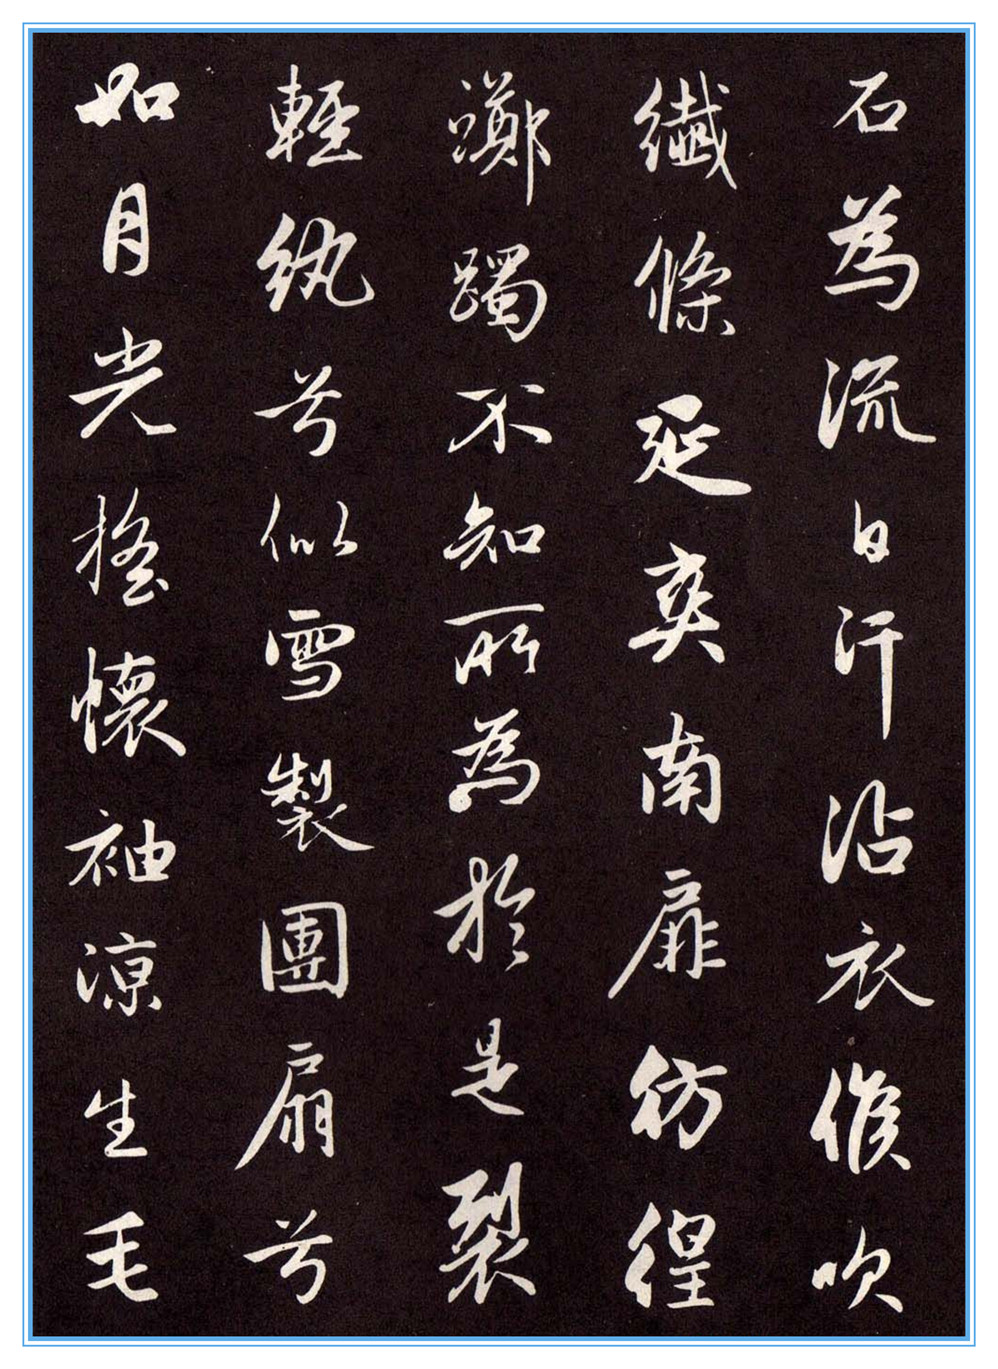 石為流日汗沾衣倏吹
纖絺延爽南扉彷徨
躑躅不知所為於是裂
輕紈兮似雪製團扇兮
如月光搖懷袖凉生毛